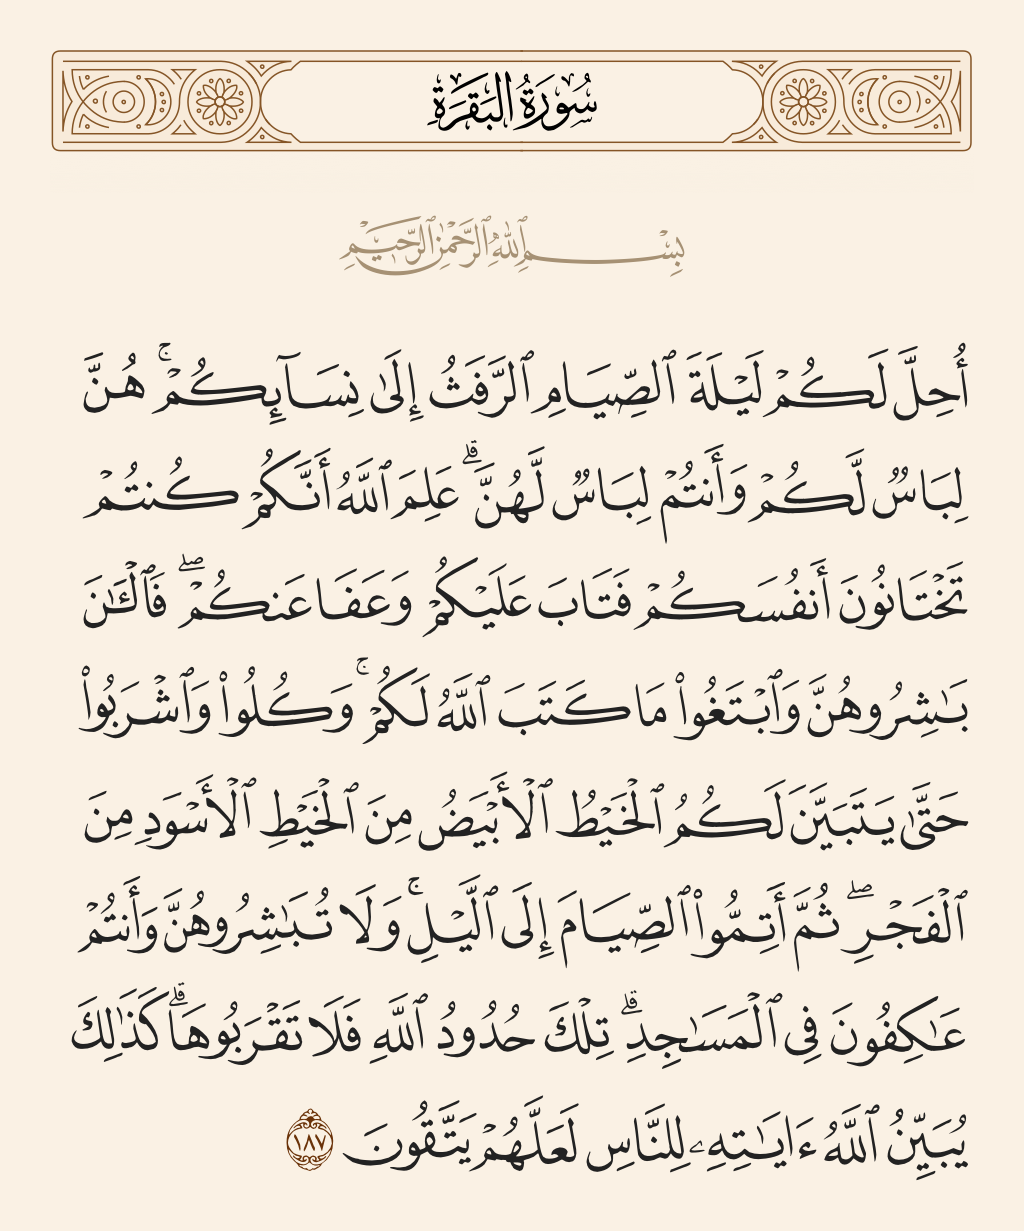 سُورَةُ البَقَرَةِ
بِسْمِ ٱللَّهِ ٱلرَّحْمَٰنِ ٱلرَّحِيمِ
أُحِلَّ لَكُمْ لَيْلَةَ ٱلصِّيَامِ ٱلرَّفَثُ إِلَىٰ نِسَآئِكُمْ ۚ هُنَّ
لِبَاسٌ لَّكُمْ وَأَنتُمْ لِبَاسٌ لَّهُنَّ ۗ عَلِمَ ٱللَّهُ أَنَّكُمْ كُنتُمْ
تَخْتَانُونَ أَنفُسَكُمْ فَتَابَ عَلَيْكُمْ وَعَفَا عَنكُمْ ۖ فَٱلْـَٰٔنَ
بَـٰشِرُوهُنَّ وَٱبْتَغُوا۟ مَا كَتَبَ ٱللَّهُ لَكُمْ ۚ وَكُلُوا۟ وَٱشْرَبُوا۟
حَتَّىٰ يَتَبَيَّنَ لَكُمُ ٱلْخَيْطُ ٱلْأَبْيَضُ مِنَ ٱلْخَيْطِ ٱلْأَسْوَدِ مِنَ
ٱلْفَجْرِ ۖ ثُمَّ أَتِمُّوا۟ ٱلصِّيَامَ إِلَى ٱلَّيْلِ ۚ وَلَا تُبَـٰشِرُوهُنَّ وَأَنتُمْ
عَـٰكِفُونَ فِى ٱلْمَسَـٰجِدِ ۗ تِلْكَ حُدُودُ ٱللَّهِ فَلَا تَقْرَبُوهَا ۗ كَذَٰلِكَ
يُبَيِّنُ ٱللَّهُ ءَايَـٰتِهِۦ لِلنَّاسِ لَعَلَّهُمْ يَتَّقُونَ ١٨٧